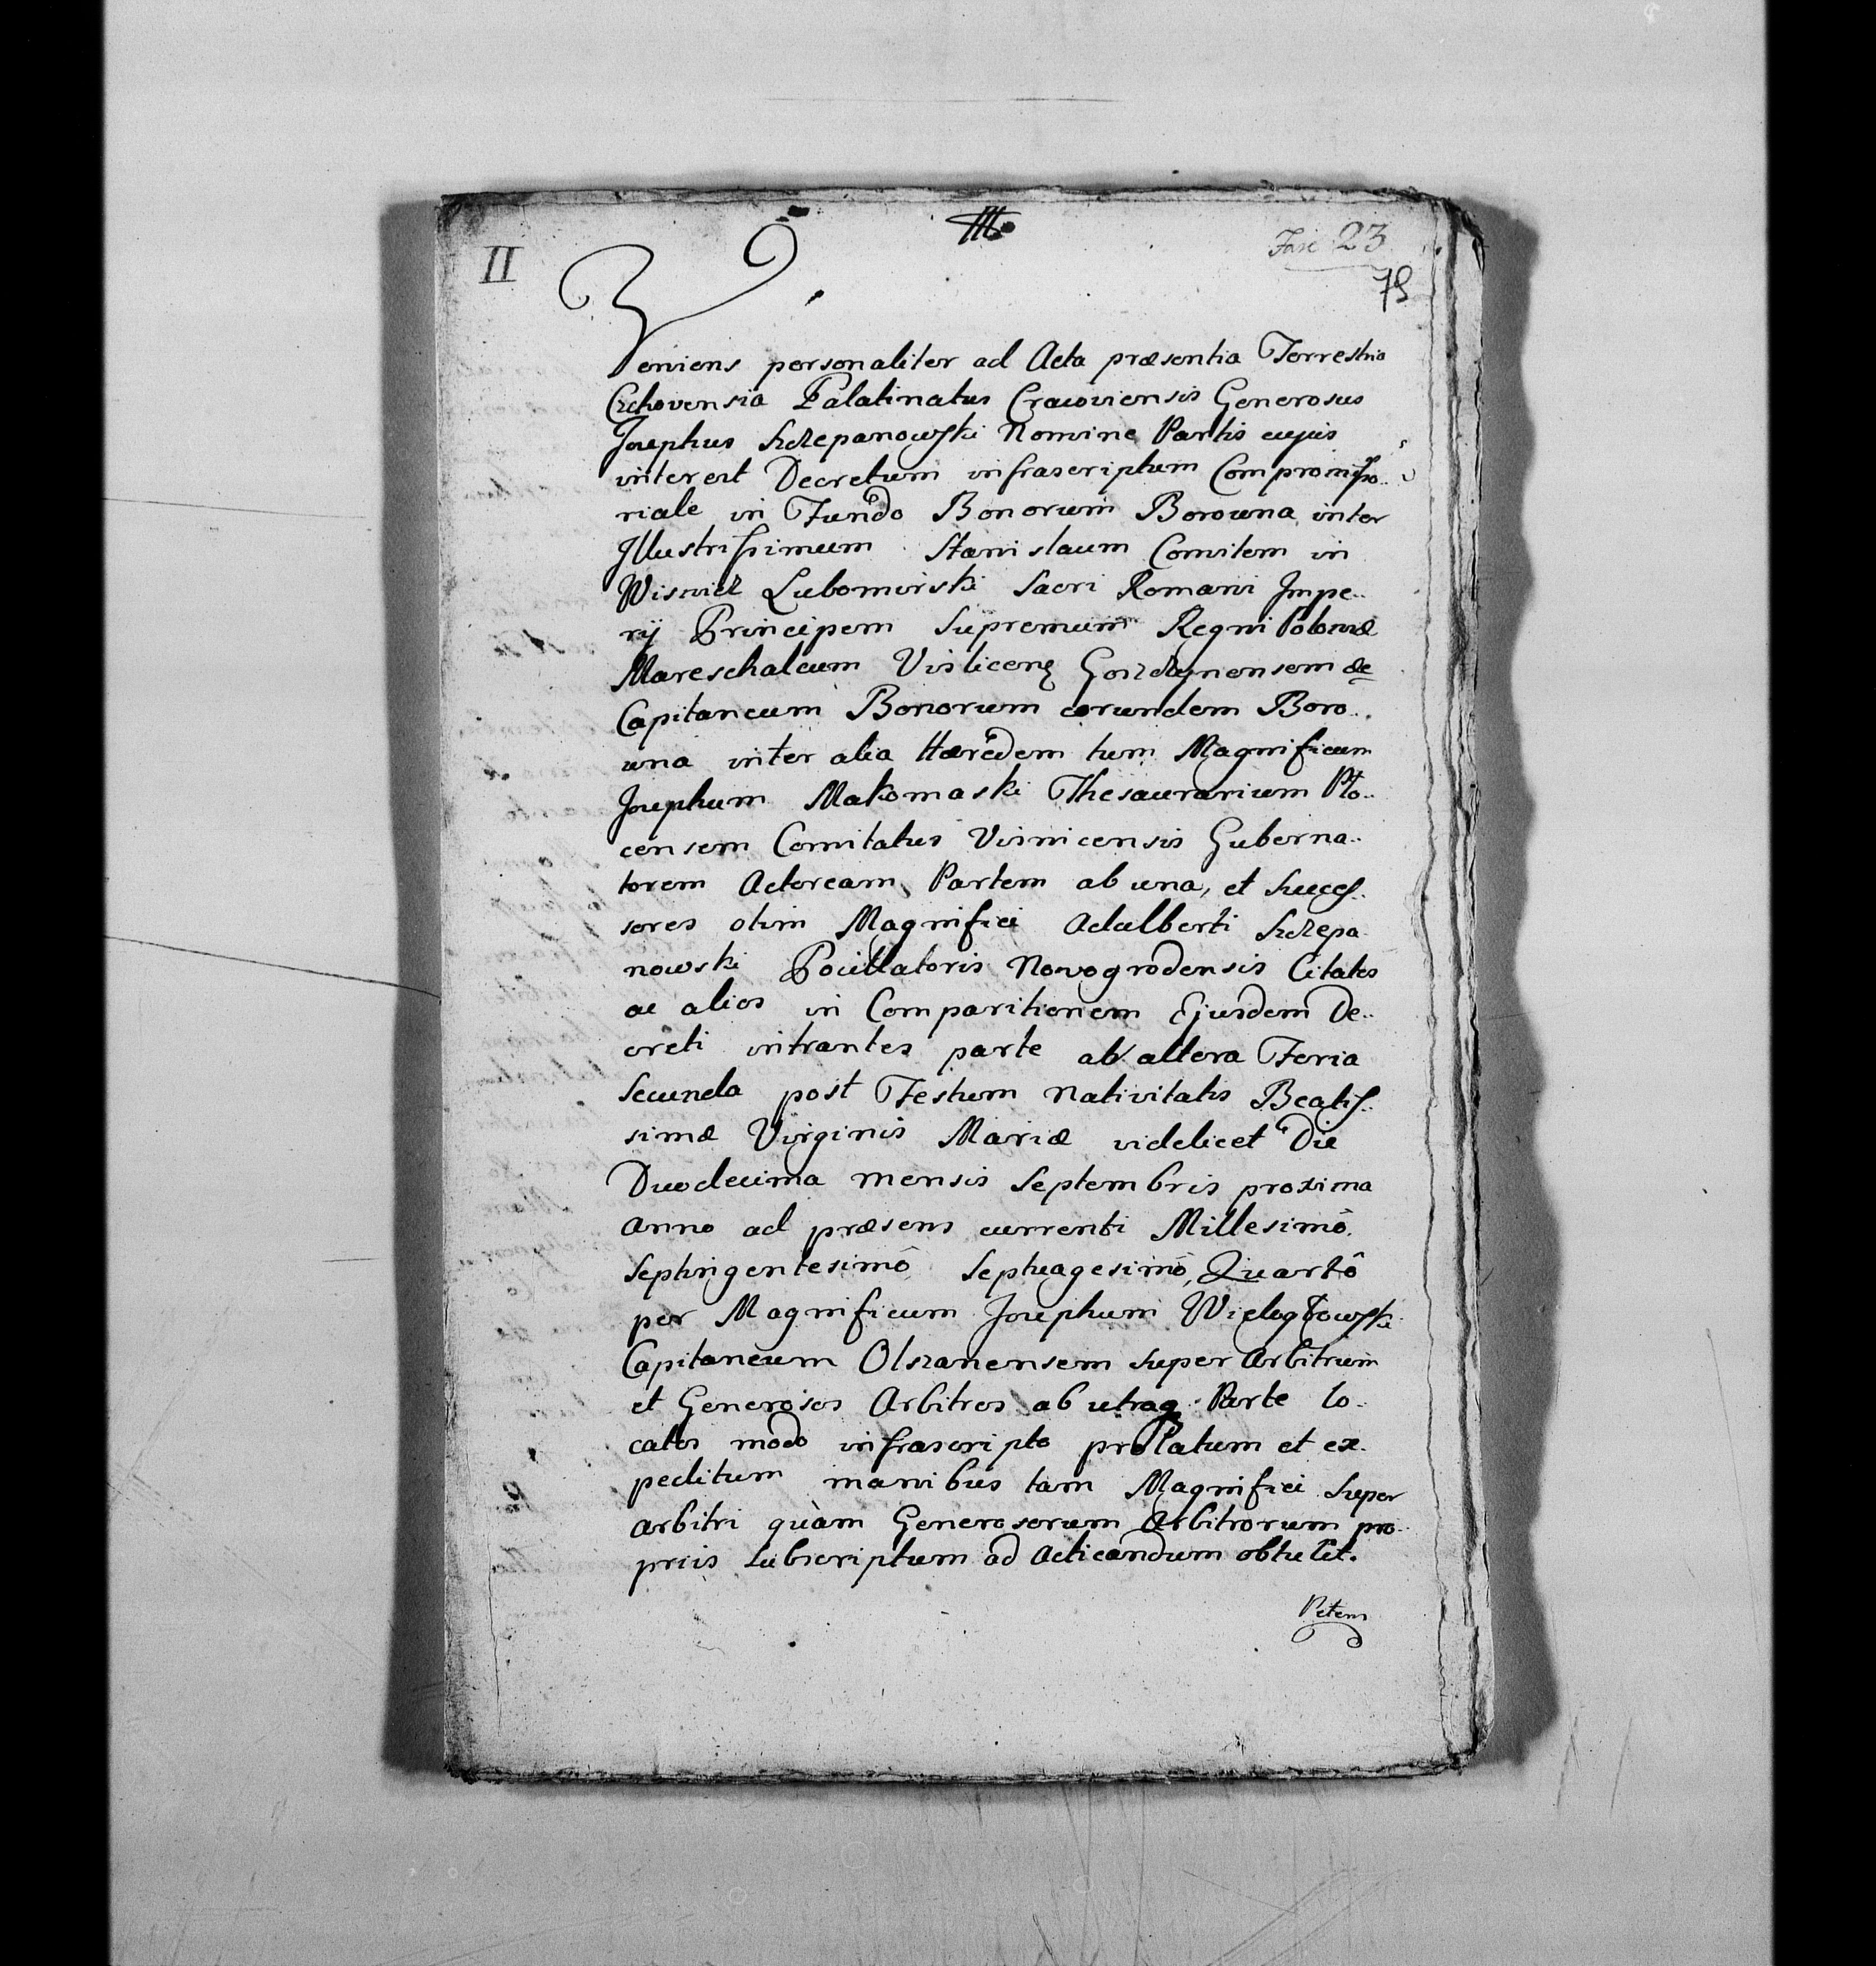 III
II
Fasc 23
75
Veniens personaliter ad Acta præsentia Terrestria
Czchoviensia Palatinatus Cracoviensis Generosus
Josephus Szczepanowski Nomine Partis cujus
interest Decretum infrascriptum Compromisso..
riale in Fundo Bonorum Borowna inter
Illustrissimum Stanislaum Comitem in
Wisnicz Lubomirski Sacri Romani Impe..
rij Principem Supremum Regni Poloniæ
Mareschalcum Vislicenȩ Gozdzynensem &c
Capitaneum Bonorum eorundem Boro..
wna inter alia Hæredem tum Magnificum
Josephum Makomaski Thesaurarium Plo..
censem Comitatus Visnicensis Guberna..
torem Actoream Partem ab una, et Succes..
sores olim Magnifici Adalberti Szczepa
nowski Pocillatoris Novogrodensis Citatos
ac alios in Comparitionem Ejusdem De..
creti intrantes parte ab altera Feria
Secunda post Festum Nativitatis Beatis..
simæ Virginis Mariæ videlicet Die
Duodecima mensis Septembris proxima
Anno ad præsens currenti Millesimô
Septingentesimô Septuagesimô, Quartô
per Magnificum Josephum Wielogłowski
Capitaneum Olszanensem Super Arbitrum
et Generosos Arbitros ab utraq Parte lo-
catos modo infrascripto prolatum et ex-
peditum manibus tam Magnifici Super
arbitri quàm Generosorum Arbitrorum pro..
priis Subscriptum ad Acticandum obtulit.